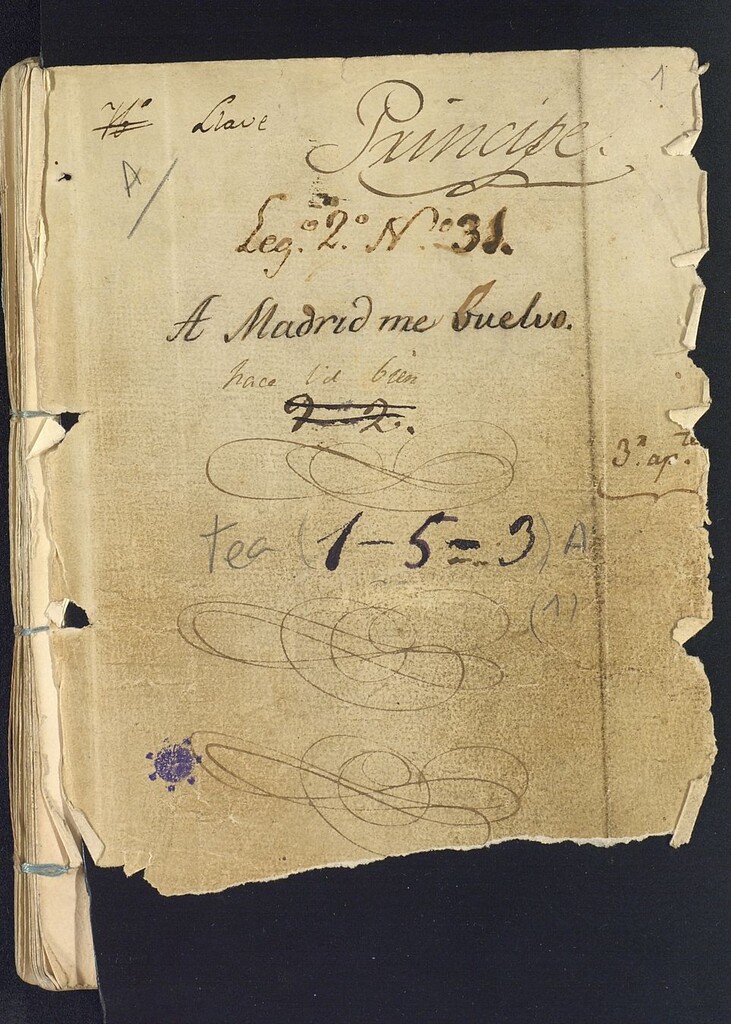 Llave Principe. 1
A
Leg.º 2.º N.º 31.
A Madrid me buelvo.
hace Vd bien
2 2.
3.ª ap.te
tea (1-5=3) A
(1)